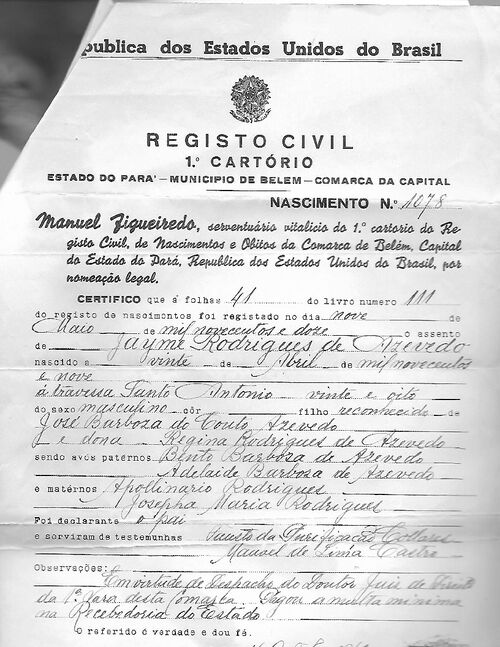 pública dos Estados Unidos do Brasil
REGISTO CIVIL
1.º CARTÓRIO
ESTADO DO PARA' — MUNICIPIO DE BELEM — COMARCA DA CAPITAL
NASCIMENTO N.º 1678
Manuel Figueiredo, serventuário vitalício do 1.º cartorio do Re
gisto Civil, de Nascimentos e Obitos da Comarca de Belém, Capital
do Estado do Pará, Republica dos Estados Unidos do Brasil, por
nomeação legal.
CERTIFICO que á folhas 41 do livro numero 111
do registo de nascimentos foi registado no dia nove de
Maio de mil novecentos e doze o assento
de Jayme Rodrigues de Azevedo
nascido a vinte de Abril de mil novecentos
e nove
á travessa Santo Antonio vinte e oito
do sexo masculino côr filho reconhecido de
José Barboza do Couto Azevedo
e dona Regina Rodrigues de Azevedo
sendo avós patérnos Bento Barboza de Azevedo
Adelaide Barboza de Azevedo
e matérnos Apollinario Rodrigues
Josepha Maria Rodrigues
Foi declarante o pai
e serviram de testemunhas da Purificação
Manoel de Lima Castro
Observações:
Em virtude de despacho do Doutor Juiz de Direito
da 1ª Vara desta Comarca. Pagou a multa minima
na Recebedoria do Estado.
O referido é verdade e dou fé.